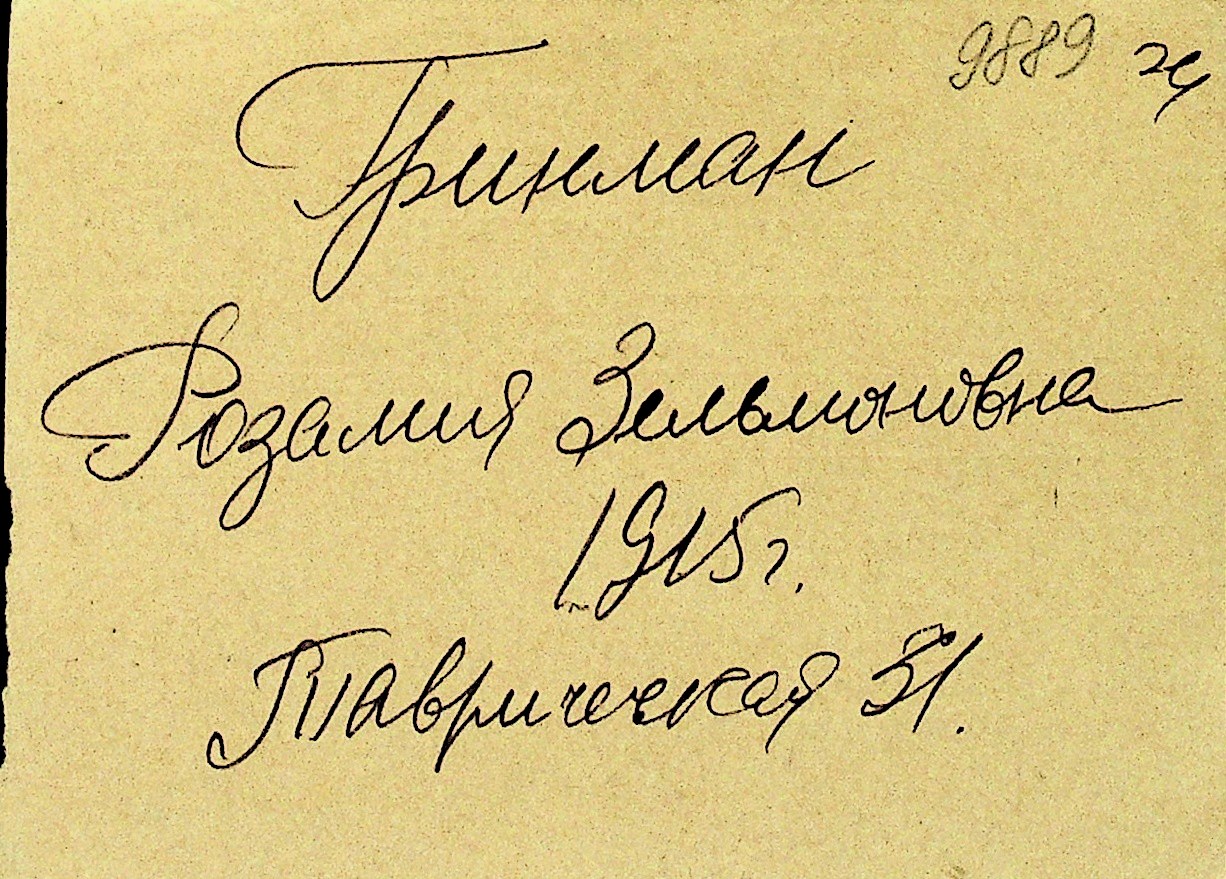 9889
Гринман
Розалия Зельмоновна
1915 г.
Таврическая 31.